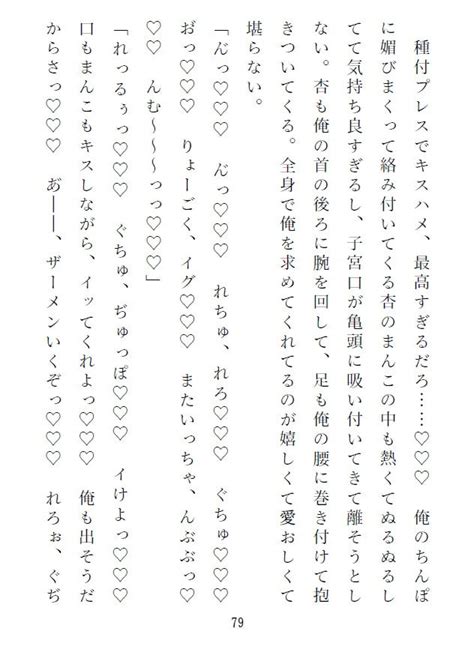 種付プレスでキスハメ、最高すぎるだろ……♡♡♡　俺のちんぽ
に媚びまくって絡み付いてくる杏のまんこの中も熱くてぬるぬるし
てて気持ち良すぎるし、子宮口が亀頭に吸い付いてきて離そうとし
ない。杏も俺の首の後ろに腕を回して、足も俺の腰に巻き付けて抱
きついてくる。全身で俺を求めてくれてるのが嬉しくて愛おしくて
堪らない。
「ん゛っ♡♡♡　ん゛っ♡♡♡　れちゅ、れろ♡♡♡　ぐちゅ♡♡♡
お゛っ♡♡♡　りょーごく、イグ♡♡♡　またいっちゃ、んぶぶっ♡
♡♡　んむ～～～っっ♡♡♡」
「れっるぅっ♡♡♡　ぐちゅ、ぢゅっぽ♡♡♡　イけよっ♡♡♡
口もまんこもキスしながら、イッてくれよっ♡♡♡　俺も出そうだ
からさっ♡♡♡　あ゛――、ザーメンいくぞっ♡♡♡　れろぉ、ぐぢ
79